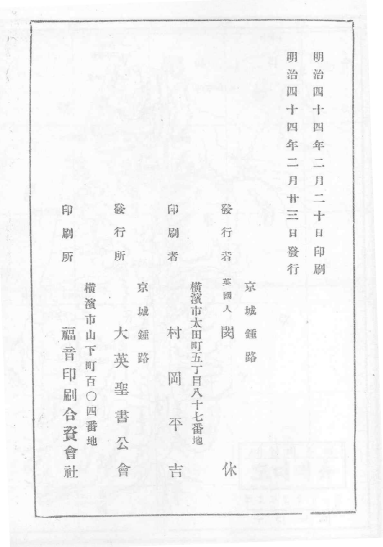 明治四十四年二月二十日印刷
明治四十四年二月廿三日發行
京城鍾路
發行者 英國人 閔休
橫濱市太田町五丁目八十七番地
印刷者 村岡平吉
京城鍾路
發行所 大英聖書公會
橫濱市山下町百〇四番地
印刷所 福音印刷合資會社